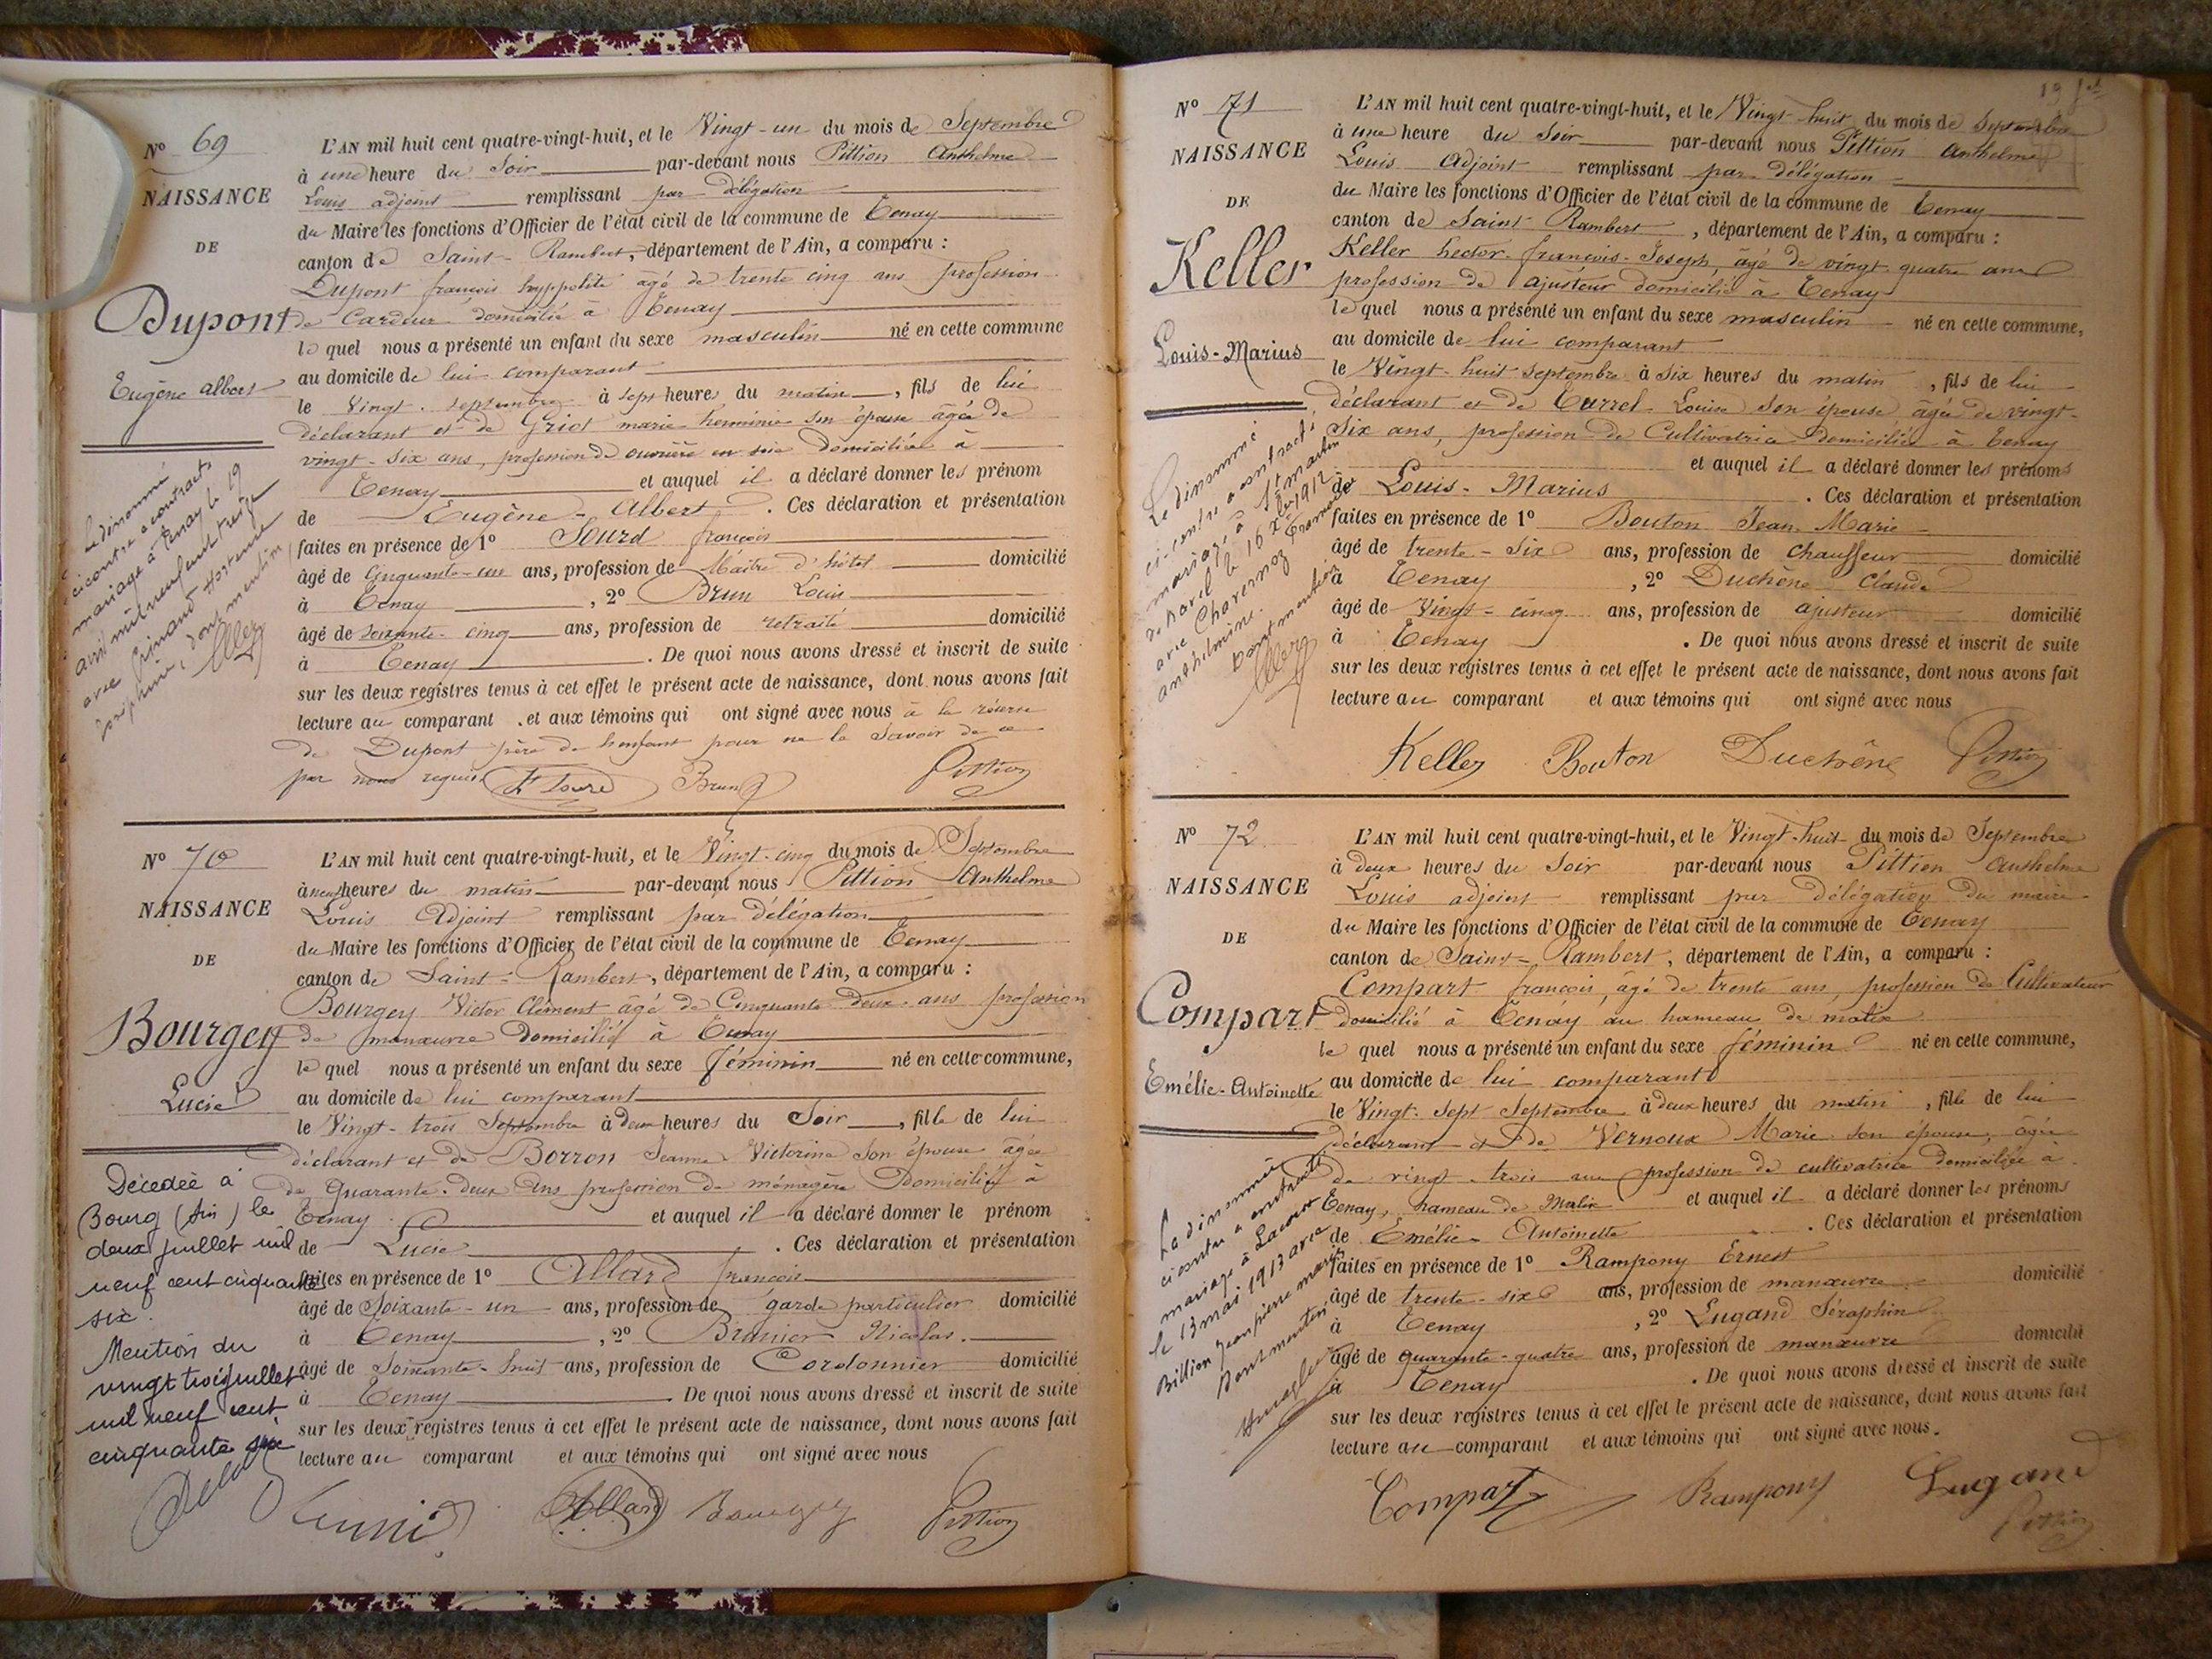 Nº 69
NAISSANCE
DE
Dupont
Eugène albert
L'AN mil huit cent quatre-vingt-huit, et le Vingt-un du mois de Septembre
à une heure du Soir par-devant nous Pittion Anthelme
Louis adjoint remplissant par délégation
du Maire les fonctions d'Officier de l'état civil de la commune de Tenay
canton de Saint-Rambert, département de l'Ain, a comparu :
Dupont françois hyppolite âgé de trente cinq ans profession
de Cardeur domicilié à Tenay
le quel nous a présenté un enfant du sexe masculin né en cette commune
au domicile de lui comparant
le Vingt septembre à sept heures du matin, fils de lui
déclarant et de Griot marie herminie son épouse âgée de
vingt-six ans, profession de ouvrière en soie domiciliée à
Tenay et auquel il a déclaré donner les prénom
de Eugène-Albert. Ces déclaration et présentation
faites en présence de 1º Sourd françois
âgé de Cinquante-un ans, profession de Maître d'hôtel domicilié
à Tenay, 2º Brun Louis
âgé de soixante-cinq ans, profession de retraité domicilié
à Tenay. De quoi nous avons dressé et inscrit de suite
sur les deux registres tenus à cet effet le présent acte de naissance, dont nous avons fait
lecture au comparant et aux témoins qui ont signé avec nous à la réserve
de Dupont père de l'enfant pour ne le savoir de ce
par nous requis Sourd Brun Pittion
Le dénommé
cicontre a contracté
mariage à Tenay le 19
avril mil neuf cent treize
avec Hortense
Joséphine, dont mention
Nº 70
NAISSANCE
DE
Bourgey
Lucie
L'AN mil huit cent quatre-vingt-huit, et le Vingt-cinq du mois de Septembre
à neuf heures du matin par-devant nous Pittion Anthelme
Louis Adjoint remplissant par délégation
du Maire les fonctions d'Officier de l'état civil de la commune de Tenay
canton de Saint-Rambert, département de l'Ain, a comparu :
Bourgey Victor Clément âgé de Cinquante deux ans profession
de manœuvre domicilié à Tenay
le quel nous a présenté un enfant du sexe féminin né en cette commune,
au domicile de lui comparant
le Vingt-trois Septembre à deux heures du Soir, fille de lui
déclarant et de Borron Jeanne Victorine son épouse âgée
de quarante-deux ans profession de ménagère domiciliée à
Tenay et auquel il a déclaré donner le prénom
de Lucie. Ces déclaration et présentation
faites en présence de 1º Allard françois
âgé de Soixante-un ans, profession de garde particulier domicilié
à Tenay, 2º Nicolas.
âgé de soixante-huit ans, profession de Cordonnier domicilié
à Tenay De quoi nous avons dressé et inscrit de suite
sur les deux registres tenus à cet effet le présent acte de naissance, dont nous avons fait
lecture au comparant et aux témoins qui ont signé avec nous
Allard Bourgey Pittion
Décédée à
Bourg (Ain) le
deux juillet mil
neuf cent cinquante
six.
Mention du
vingt trois juillet
mil neuf cent
cinquante six
Nº 71
NAISSANCE
DE
Keller
Louis-Marius
L'AN mil huit cent quatre-vingt-huit, et le Vingt huit du mois de Septembre
à une heure du Soir par-devant nous Pittion Anthelme
Louis Adjoint remplissant par délégation
du Maire les fonctions d'Officier de l'état civil de la commune de Tenay
canton de Saint-Rambert, département de l'Ain, a comparu :
Keller hector-françois-Joseph, âgé de vingt-quatre ans
profession de ajusteur domicilié à Tenay
le quel nous a présenté un enfant du sexe masculin né en cette commune,
au domicile de lui comparant
le Vingt-huit septembre à six heures du matin, fils de lui
déclarant et de Currel Louise son épouse âgée de vingt-
six ans, profession de Cultivatrice domiciliée à Tenay
et auquel il a déclaré donner les prénoms
de Louis-Marius. Ces déclaration et présentation
faites en présence de 1º Bouton Jean Marie
âgé de trente-six ans, profession de chauffeur domicilié
à Tenay, 2º Duchêne Claude
âgé de Vingt-cinq ans, profession de ajusteur domicilié
à Tenay. De quoi nous avons dressé et inscrit de suite
sur les deux registres tenus à cet effet le présent acte de naissance, dont nous avons fait
lecture au comparant et aux témoins qui ont signé avec nous
Keller Bouton Duchêne Pittion
Le dénommé
ci-contre a contracté
mariage à St Martin
de Bavel le 16 Xbre 1912
avec Chavernoz Françoise
anthelmine.
Dont mention
Nº 72
NAISSANCE
DE
Compart
Emélie-Antoinette
L'AN mil huit cent quatre-vingt-huit, et le Vingt-huit du mois de Septembre
à deux heures du Soir par-devant nous Pittion Anthelme
Louis adjoint remplissant par délégation du maire
du Maire les fonctions d'Officier de l'état civil de la commune de Tenay
canton de Saint-Rambert, département de l'Ain, a comparu :
Compart françois, âgé de trente ans, profession de Cultivateur
domicilié à Tenay au hameau de malix
le quel nous a présenté un enfant du sexe féminin né en cette commune,
au domicile de lui comparant
le Vingt-sept Septembre à deux heures du matin, fille de lui
déclarant et de Vernoux Marie son épouse, âgée
de vingt-trois ans profession de cultivatrice domiciliée à
Tenay, hameau de Malix et auquel il a déclaré donner les prénoms
de Emélie Antoinette. Ces déclaration et présentation
faites en présence de 1º Rampony Ernest
âgé de trente-six ans, profession de manœuvre domicilié
à Tenay, 2º Lugand Séraphin
âgé de quarante-quatre ans, profession de manœuvre domicilié
à Tenay. De quoi nous avons dressé et inscrit de suite
sur les deux registres tenus à cet effet le présent acte de naissance, dont nous avons fait
lecture au comparant et aux témoins qui ont signé avec nous.
Compart Rampony Lugand Pittion
La dénommée
cicontre a contracté
mariage à Lacoux
le 13 mai 1913 avec
Billion Jean pierre marius
Dont mention